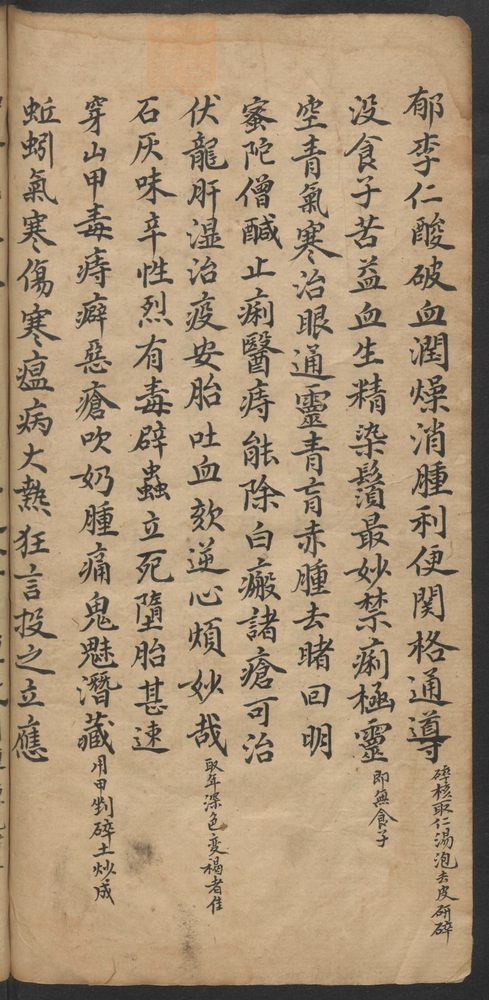 郁李仁酸破血潤燥消腫利便関格通導碎核取仁湯泡去皮研碎
没食子苦益血生精染鬚最妙禁痢極靈即無食子
空青氣寒治眼通靈青盲赤腫去睹回明
蜜陀僧醎止痢醫痔能除白瘢諸瘡可治
伏龍肝湿治疫安胎吐血欬逆心煩妙哉取年深色变褐者佳
石灰味辛性烈有毒辟蟲立死墮胎甚速
穿山甲毒痔癖惡瘡吹奶腫痛鬼魅潛藏用甲剉碎土炒成
蚯蚓氣寒傷寒瘟病大熱狂言投之立應